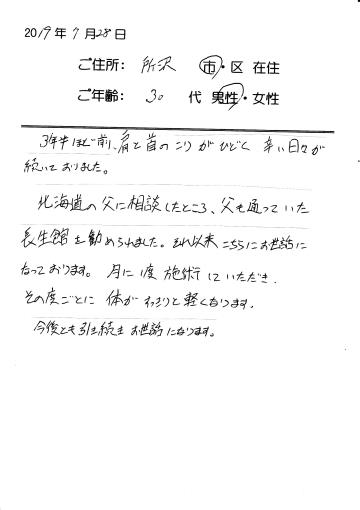 2019年 7月28日
ご住所: 所沢 市・区 在住
ご年齢: 30 代 男性・女性
3年半ほど前、肩と首のこりがひどく 辛い日々が
続いておりました。
北海道の父に相談したところ、父も通っていた
長生館を勧められました。それ以来こちらにお世話に
なっております。月に1度 施術していただき、
その度ごとに 体がすっきりと軽くなります。
今後とも引き続きお世話になります。